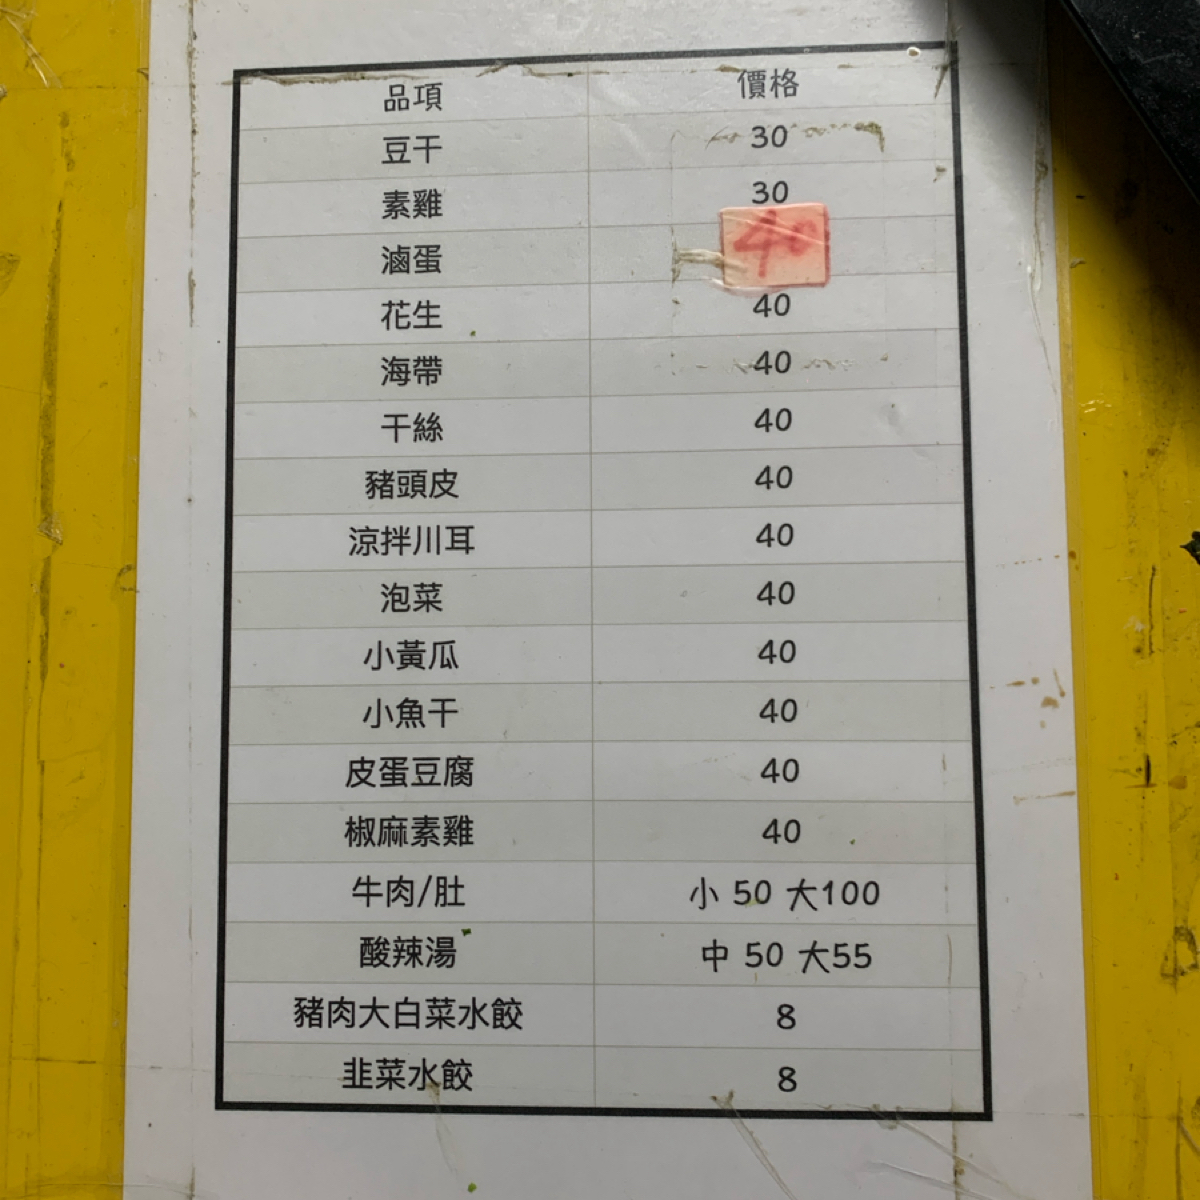 品項 價格
豆干 30
素雞 30
滷蛋 40
花生 40
海帶 40
干絲 40
豬頭皮 40
涼拌川耳 40
泡菜 40
小黃瓜 40
小魚干 40
皮蛋豆腐 40
椒麻素雞 40
牛肉/肚 小 50 大100
酸辣湯 中 50 大55
豬肉大白菜水餃 8
韭菜水餃 8